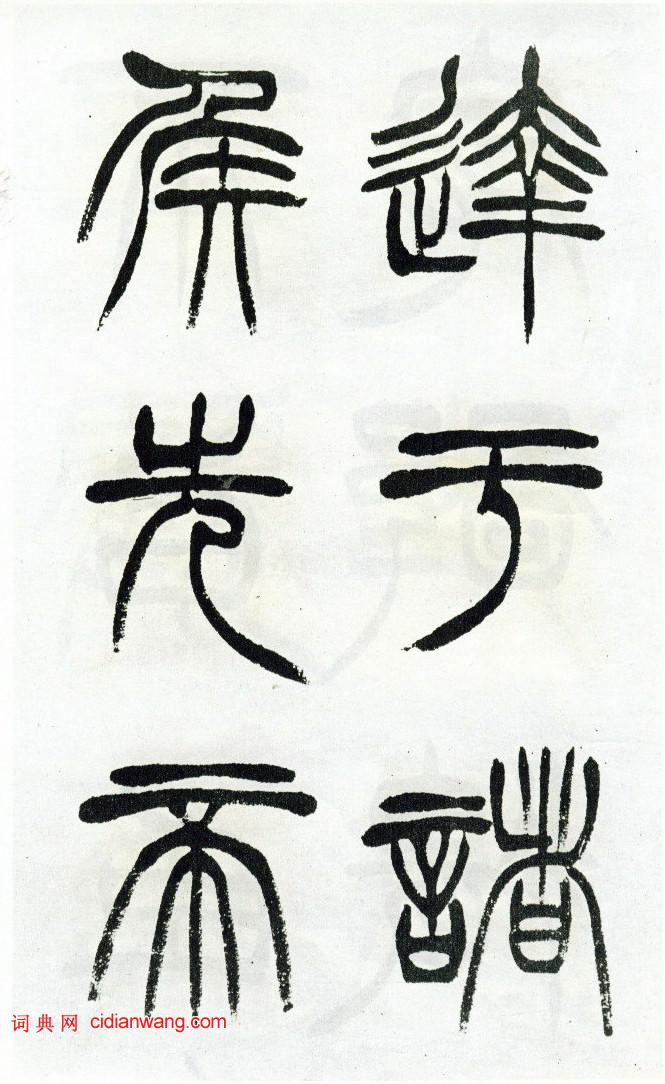 達于諸
侯先帝
词典网 cidianwang.com